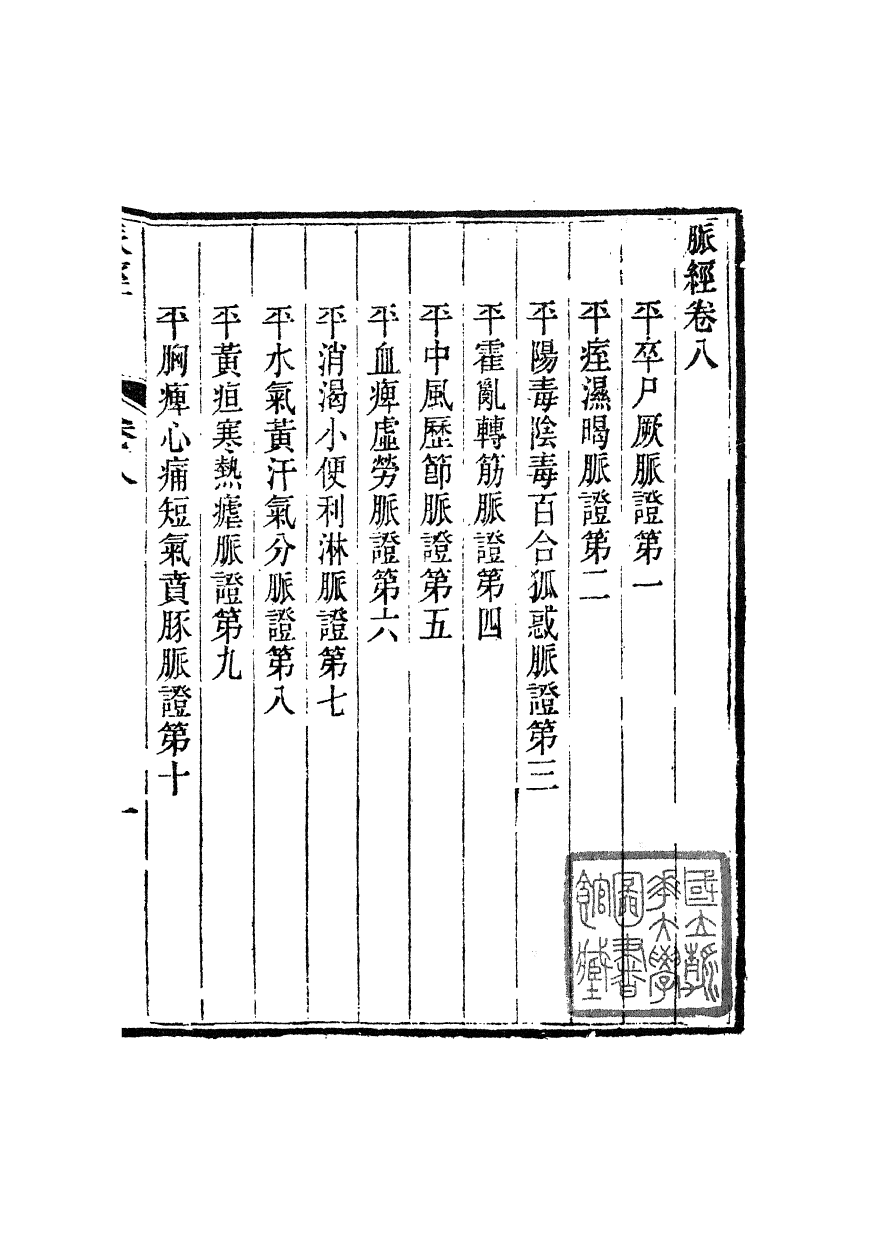 脈經卷八
平卒尸厥脈證第一
平痓濕暍脈證第二
平陽毒陰毒百合狐惑脈證第三
平霍亂轉筋脈證第四
平中風歷節脈證第五
平血痺虛勞脈證第六
平消渴小便利淋脈證第七
平水氣黃汗氣分脈證第八
平黃疸寒熱瘧脈證第九
平胸痺心痛短氣賁豚脈證第十
卷八
一
國立清
華大學
圖書
館藏